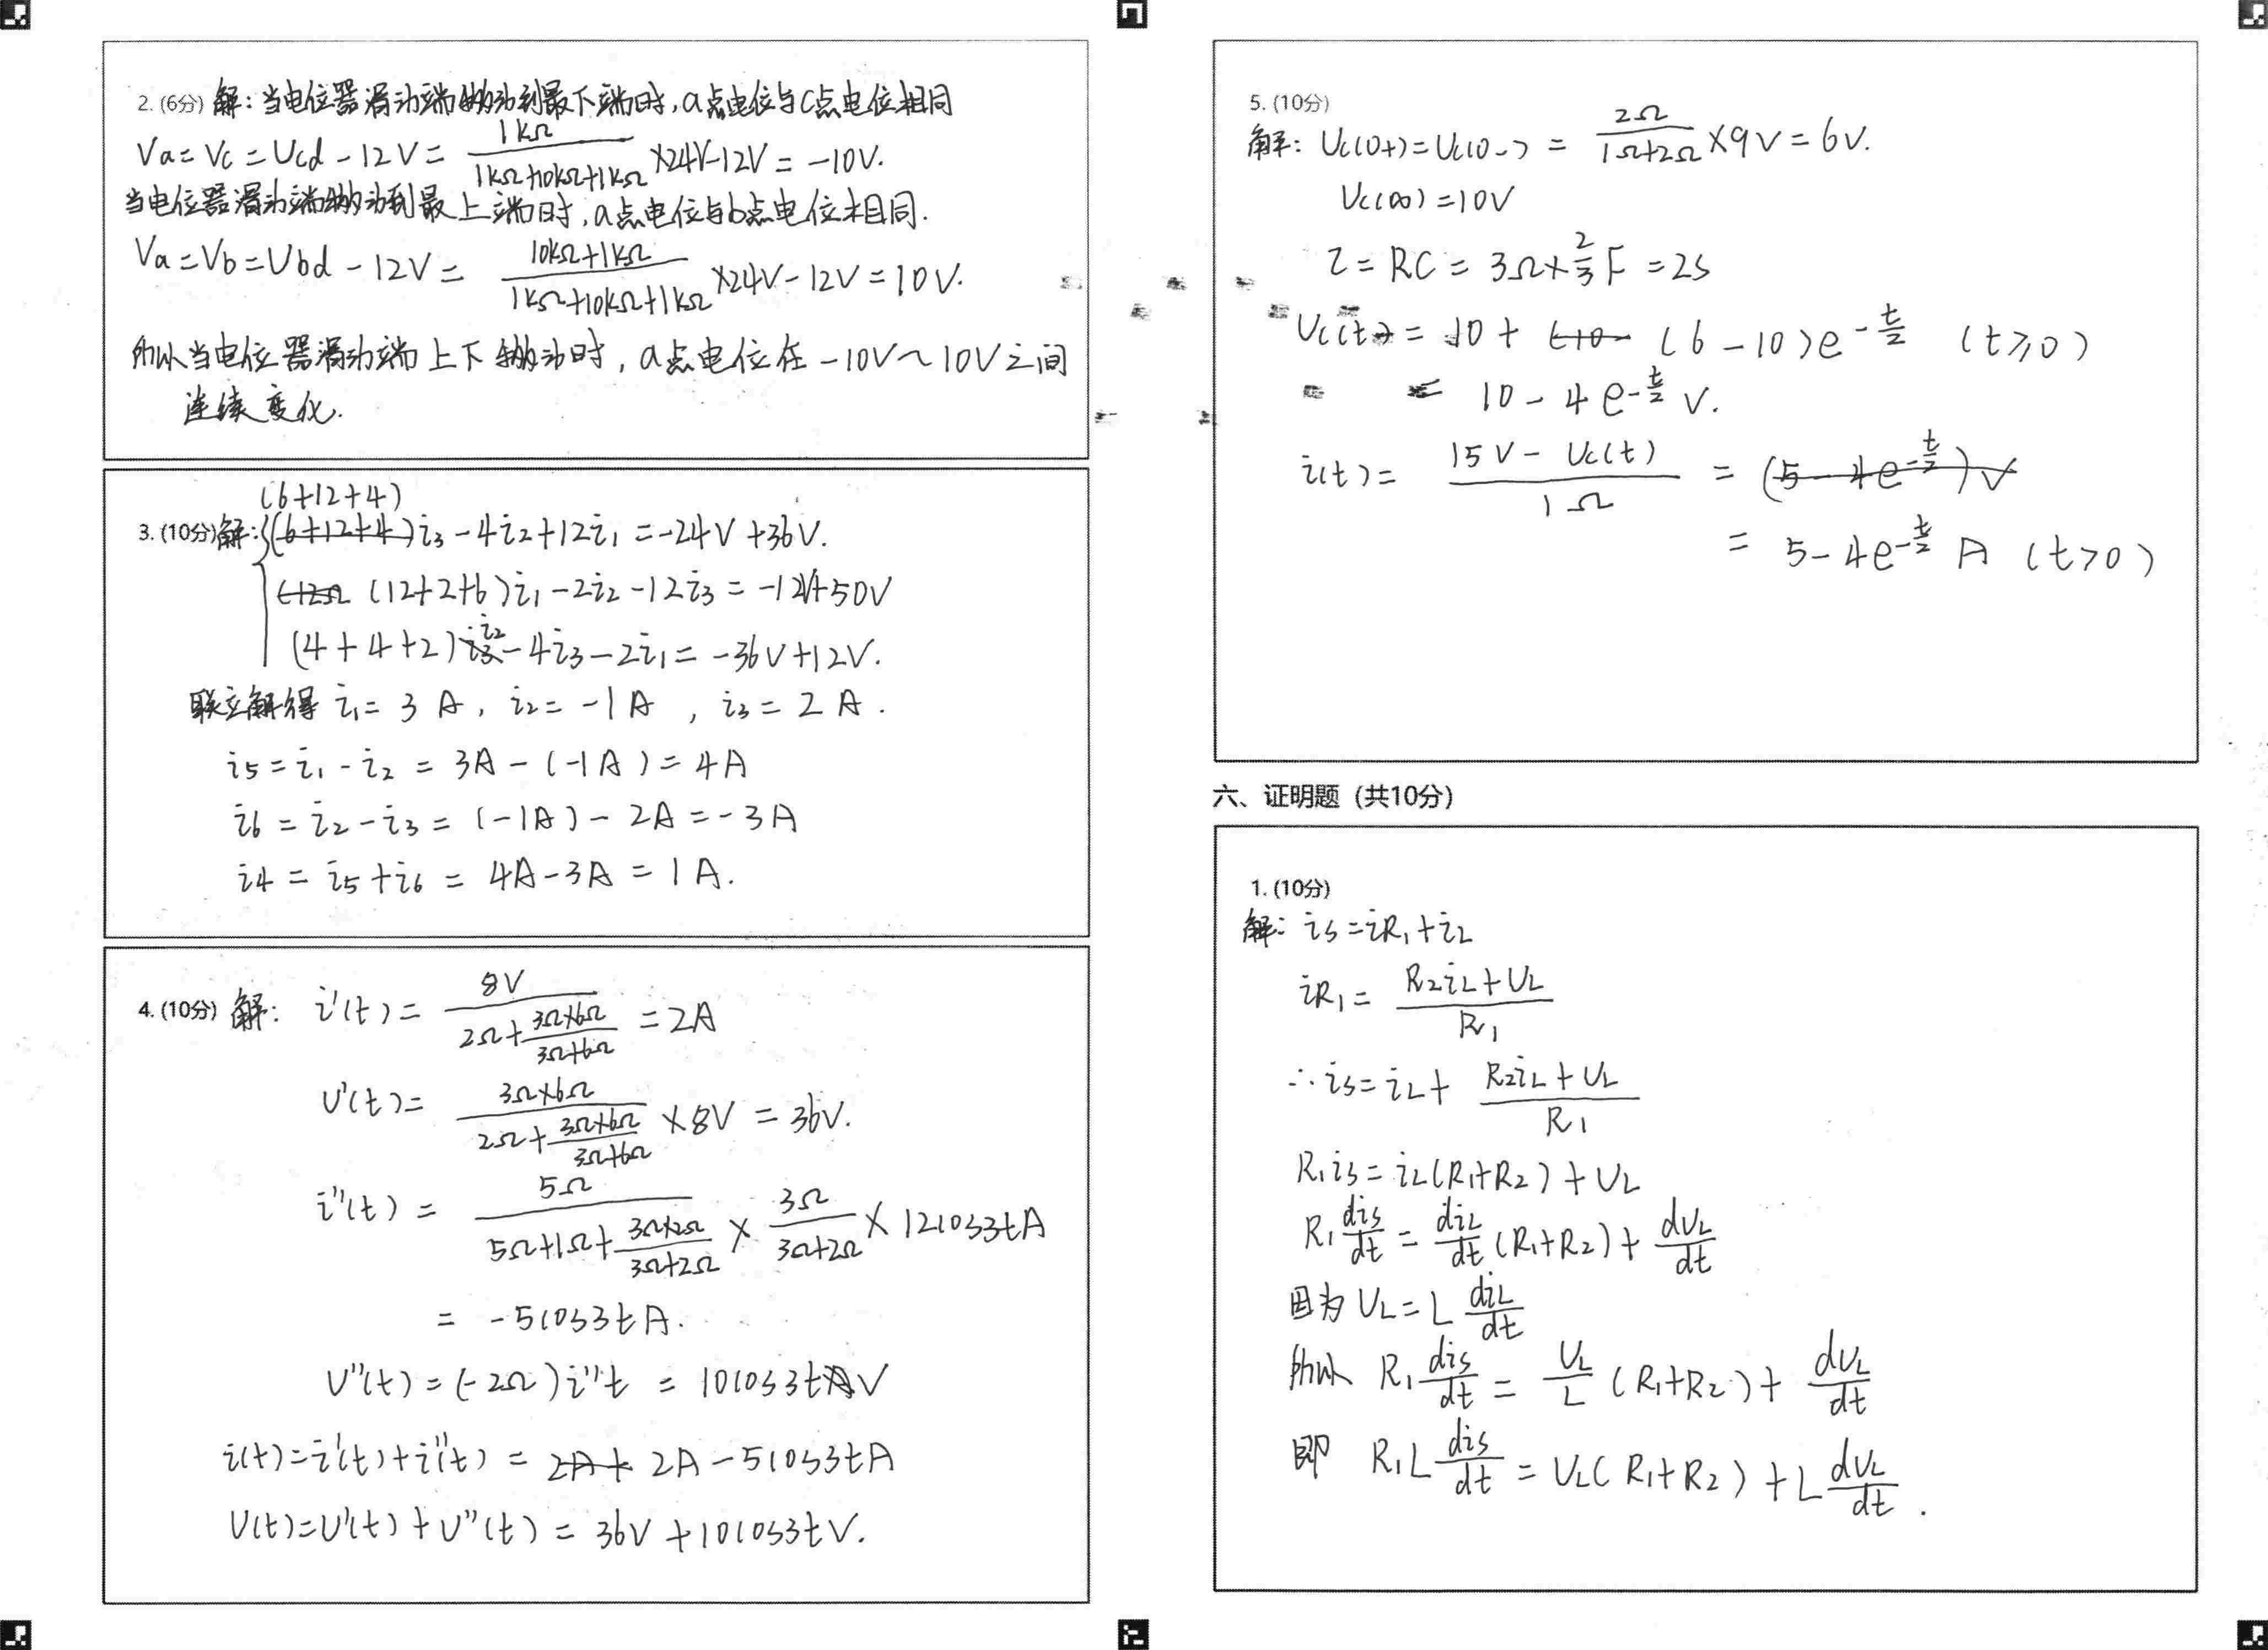 2. (6分) 解：当电位器滑动端移动到最下端时，a点电位与c点电位相同
Va = Vc = Ucd - 12V = 1kΩ/(1kΩ+10kΩ+1kΩ) ×24V-12V = -10V.
当电位器滑动端移动到最上端时，a点电位与b点电位相同.
Va = Vb = Ubd - 12V = (10kΩ+1kΩ)/(1kΩ+10kΩ+1kΩ) ×24V - 12V = 10V.
所以当电位器滑动端上下移动时，a点电位在-10V~10V之间
连续变化.
(6+12+4)
3. (10分) 解：{ (6+12+4) i3 - 4i2 + 12i1 = -24V + 36V.
(12Ω (12+2+6) i1 - 2i2 - 12i3 = -12V+50V
(4+4+2) i2 - 4i3 - 2i1 = -36V+12V.
联立解得 i1 = 3A, i2 = -1A, i3 = 2A.
i5 = i1 - i2 = 3A - (-1A) = 4A
i6 = i2 - i3 = (-1A) - 2A = -3A
i4 = i5 + i6 = 4A - 3A = 1A.
4. (10分) 解： i'(t) = 8V/(2Ω + 3Ω×6Ω/(3Ω+6Ω)) = 2A
U'(t) = 3Ω×6Ω/(2Ω + 3Ω×6Ω/(3Ω+6Ω)) × 8V = 36V.
i''(t) = 5Ω/(5Ω+1Ω+ 3Ω×2Ω/(3Ω+2Ω)) × 3Ω/(3Ω+2Ω) × 12cos3tA
= -5cos3tA.
U''(t) = (-2Ω) i''t = 10cos3tV
i(t) = i'(t) + i''(t) = 2A + 2A - 5cos3tA
U(t) = U'(t) + U''(t) = 36V + 10cos3tV.
5. (10分)
解： Uc(0+) = Uc(0-) = 2Ω/(1Ω+2Ω) × 9V = 6V.
Uc(∞) = 10V
τ = RC = 3Ω × 2/3 F = 2S
Uc(t) = 10 + (10- (6-10)e^{-t/2} (t≥0)
= 10 - 4e^{-t/2} V.
i(t) = (15V - Uc(t))/1Ω = (5 - 4e^{-t/2})V
= 5 - 4e^{-t/2} A (t>0)
六、证明题（共10分）
1. (10分)
解： iS = iR1 + iL
iR1 = (R2iL + UL)/R1
∴ iS = iL + (R2iL + UL)/R1
R1iS = iL(R1+R2) + UL
R1 diS/dt = diL/dt (R1+R2) + dUL/dt
因为 UL = L diL/dt
所以 R1 diS/dt = UL/L (R1+R2) + dUL/dt
即 R1L diS/dt = UL(R1+R2) + L dUL/dt.